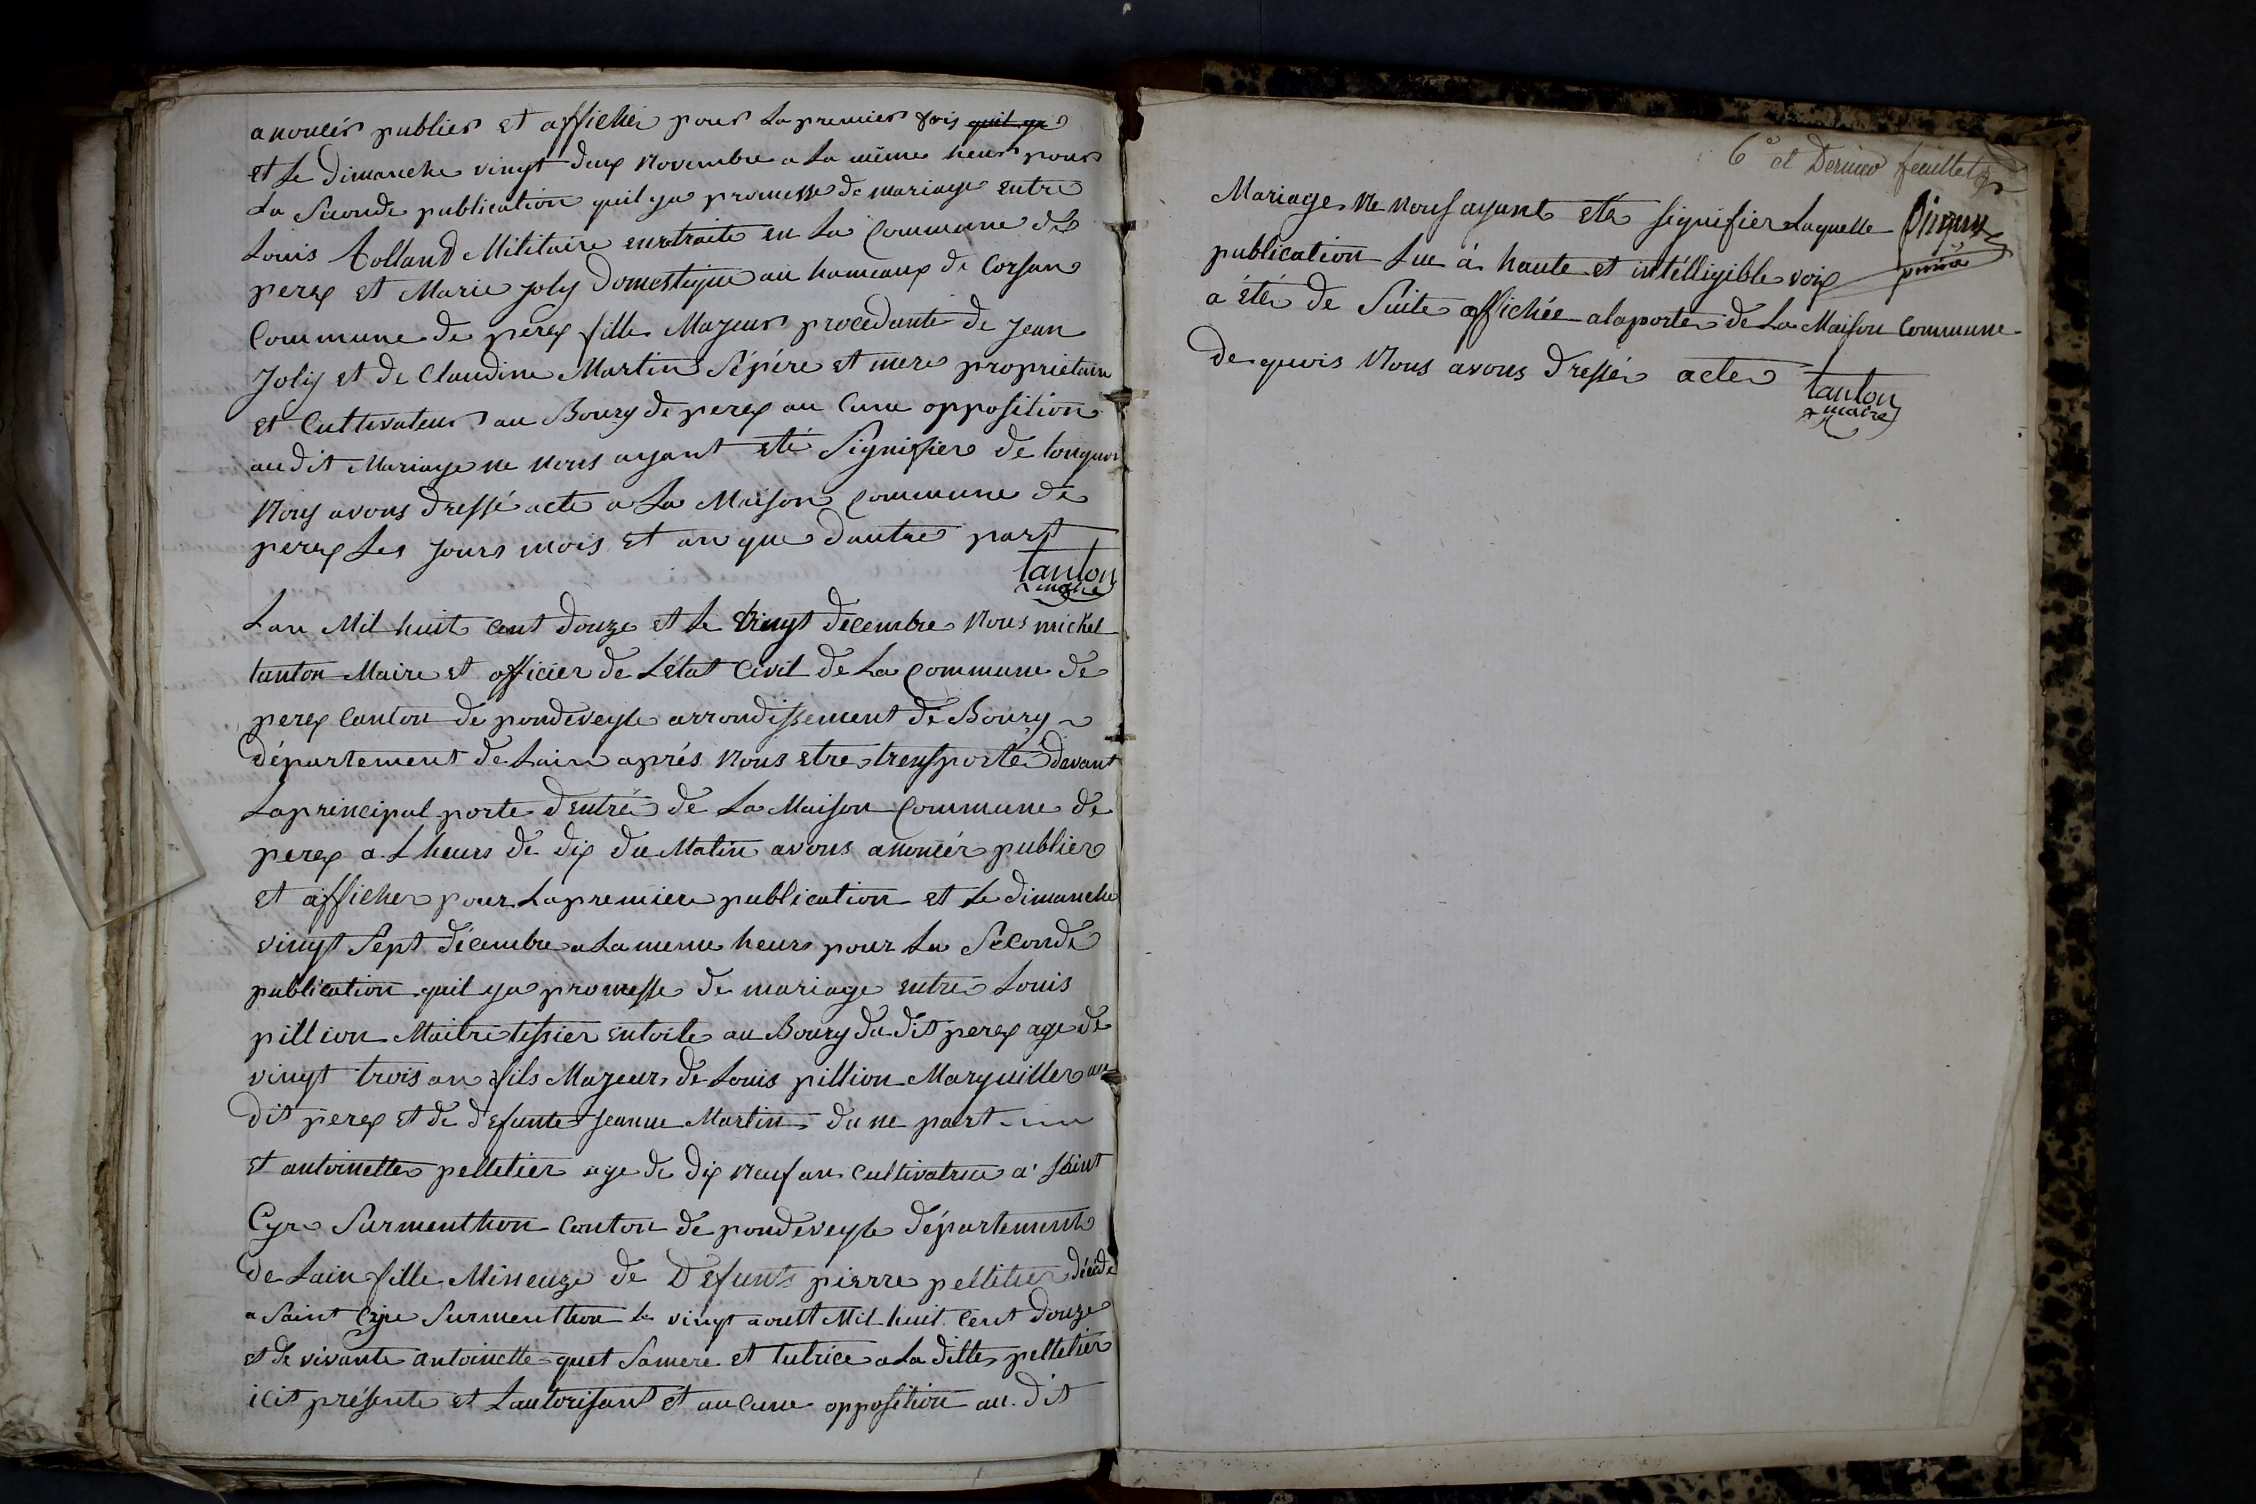 anoncér publier et afficher pour la premier fois quil ya
et le dimanche vingt deux Novembre a la même heur pour
la Seconde publication quil ya promesse de mariage entre
Louis Colland Militaire enretraite en la Commune de
perex et Marie joly Domestique au hameaux de Corsan
Commune de perex fille Majeur procedante de jean
Joly et de Claudine Martin Sépére et mere propriétaire
et Cultivateur au Bourg de perex au Cune opposition
audit Mariage ne Nous ayant eté Signifier de touquoi
Nous avons dressé acte a la Maison Commune de
perex les jours mois et an que dautre part
tanton
maire
Lan Mil huit Cent douze et le Vingt decembre Nous michel
tanton Maire et officier de Létat Civil de la Commune de
perex Canton de pondeveyle arrondissement de Bourg
département de Lain aprés Nous etre transporté devant
laprincipal porte dentrée de la Maison Commune de
perex a Lheure de dix du Matin avons anoncér publier
et afficher pour lapremiere publication et le dimanche
vingt Sept décembre a la meme heure pour la Séconde
publication quil ya promesse de mariage entre Louis
pillion Maitre tissier entoile au Bourg du dit perex age de
vingt trois an fils Majeur de Louis pillion Marguiller au
dit perex et de défunte Jeanne Martin du ne part
et antoinette pelletier age de dix Neuf an Cultivatrice a' Saint
Cyr Surmenthon Canton de pondeveyle département
de Lain fille Mineure de Défunts pierre pelletier décédé
a Saint Cyr Surmenthon le vingt aoust Mil huit Cent douze
et de vivante antoinette quet Samere et tutrice a la ditte pelletier
icit présente et Lautorisant et au Cune opposition au dit
6e et Dernier feuillet
Mariage Ne Nous ayant eté signifier Laquelle
publication Lue à haute et intélligible voix
a été de Suite affichée alaporte de la Maison Commune
de quois Nous avons dressér acte
tanton
maire